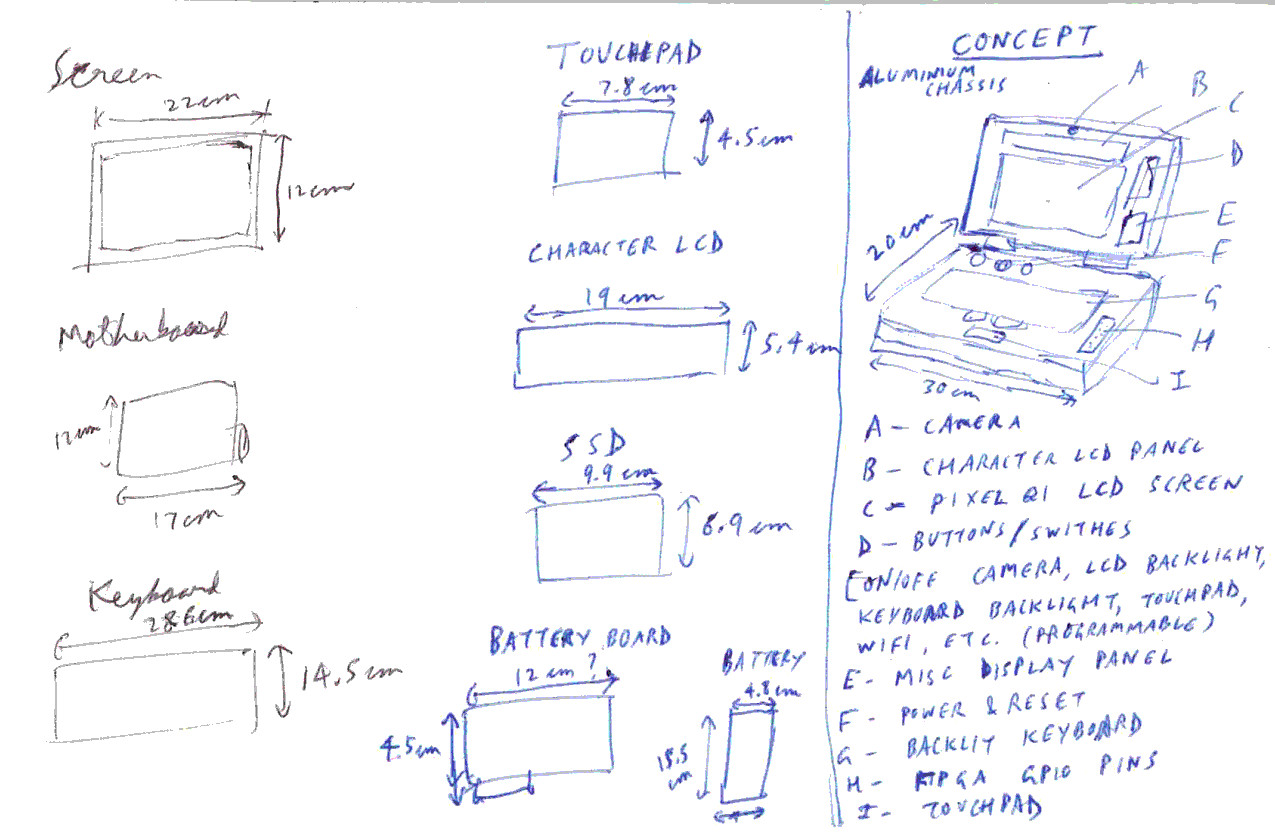 Screen
22cm
12cm
Motherboard
12cm
17cm
Keyboard
28.6cm
14.5cm
TOUCHPAD
7.8cm
4.5cm
CHARACTER LCD
19cm
5.4cm
SSD
9.9cm
6.9cm
BATTERY BOARD
12cm?
4.5cm
BATTERY
4.8cm
cm
CONCEPT
ALUMINIUM
CHASSIS
A
B
C
D
E
F
G
H
I
20cm
30cm
A - CAMERA
B - CHARACTER LCD PANEL
C - PIXEL QI LCD SCREEN
D - BUTTONS/SWITHES
[ON/OFF CAMERA, LCD BACKLIGHT,
KEYBOARD BACKLIGHT, TOUCHPAD,
WIFI, ETC. (PROGRAMMABLE)
E - MISC DISPLAY PANEL
F - POWER & RESET
G - BACKLIT KEYBOARD
H - FPGA GPIO PINS
I - TOUCHPAD